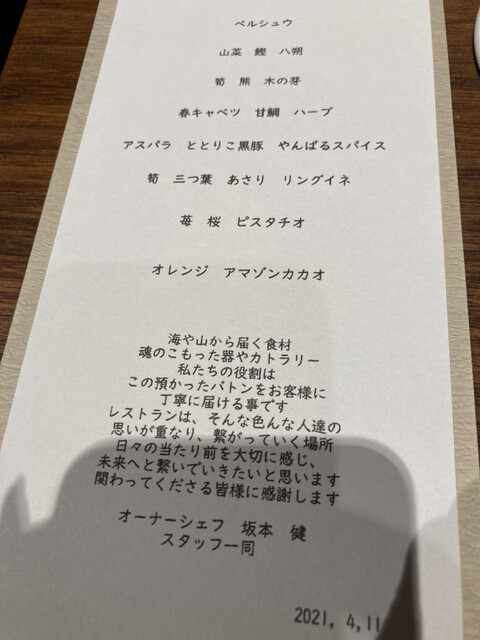 ペルシュウ
山菜　鰹　八朔
筍　熊　木の芽
春キャベツ　甘鯛　ハーブ
アスパラ　ととりこ黒豚　やんばるスパイス
筍　三つ葉　あさり　リングイネ
苺　桜　ピスタチオ
オレンジ　アマゾンカカオ
海や山から届く食材
魂のこもった器やカトラリー
私たちの役割は
この預かったバトンをお客様に
丁寧に届ける事です
レストランは、そんな色んな人達の
思いが重なり、繋がっていく場所
日々の当たり前を大切に感じ、
未来へと繋いでいきたいと思います
関わってくださる皆様に感謝します
オーナーシェフ　坂本　健
スタッフ一同
2021, 4,11